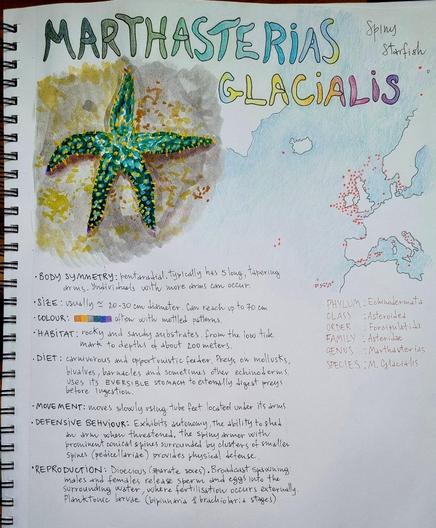 MARTHASTERIAS
GLACIALIS
Spiny
Starfish
• BODY SYMMETRY: pentaradial, typically has 5 long, tapering
arms. Individuals with more arms can occur.
• SIZE: usually ≈ 20-30 cm diameter. Can reach up to 70 cm
• COLOUR: often with mottled patterns.
• HABITAT: rocky and sandy substrates from the low tide
mark to depths of about 200 meters.
• DIET: carnivorous and opportunistic feeder. Preys on mollusks,
bivalves, barnacles and sometimes other echinoderms.
uses its EVERSIBLE stomach to externally digest preys
before ingestion.
• MOVEMENT: moves slowly using tube feet located under its arms
• DEFENSIVE BEHVIOUR: Exhibits autonomy, the ability to shed
an arm when threatened. The spiny armor with
prominent conical spines surrounded by clusters of smaller
spines (pedicellariae) provides physical defense.
• REPRODUCTION: Dioecious (separate sexes). Broadcast spawning
males and females release sperm and eggs into the
surrounding water, where fertilisation occurs externally.
Planktonic larvae (bipinnaria & brachiolaria stages)
PHYLUM: Echinodermata
CLASS: Asteroidea
ORDER: Forcipulatida
FAMILY: Asteriidae
GENUS: Marthasterias
SPECIES: M. Glacialis